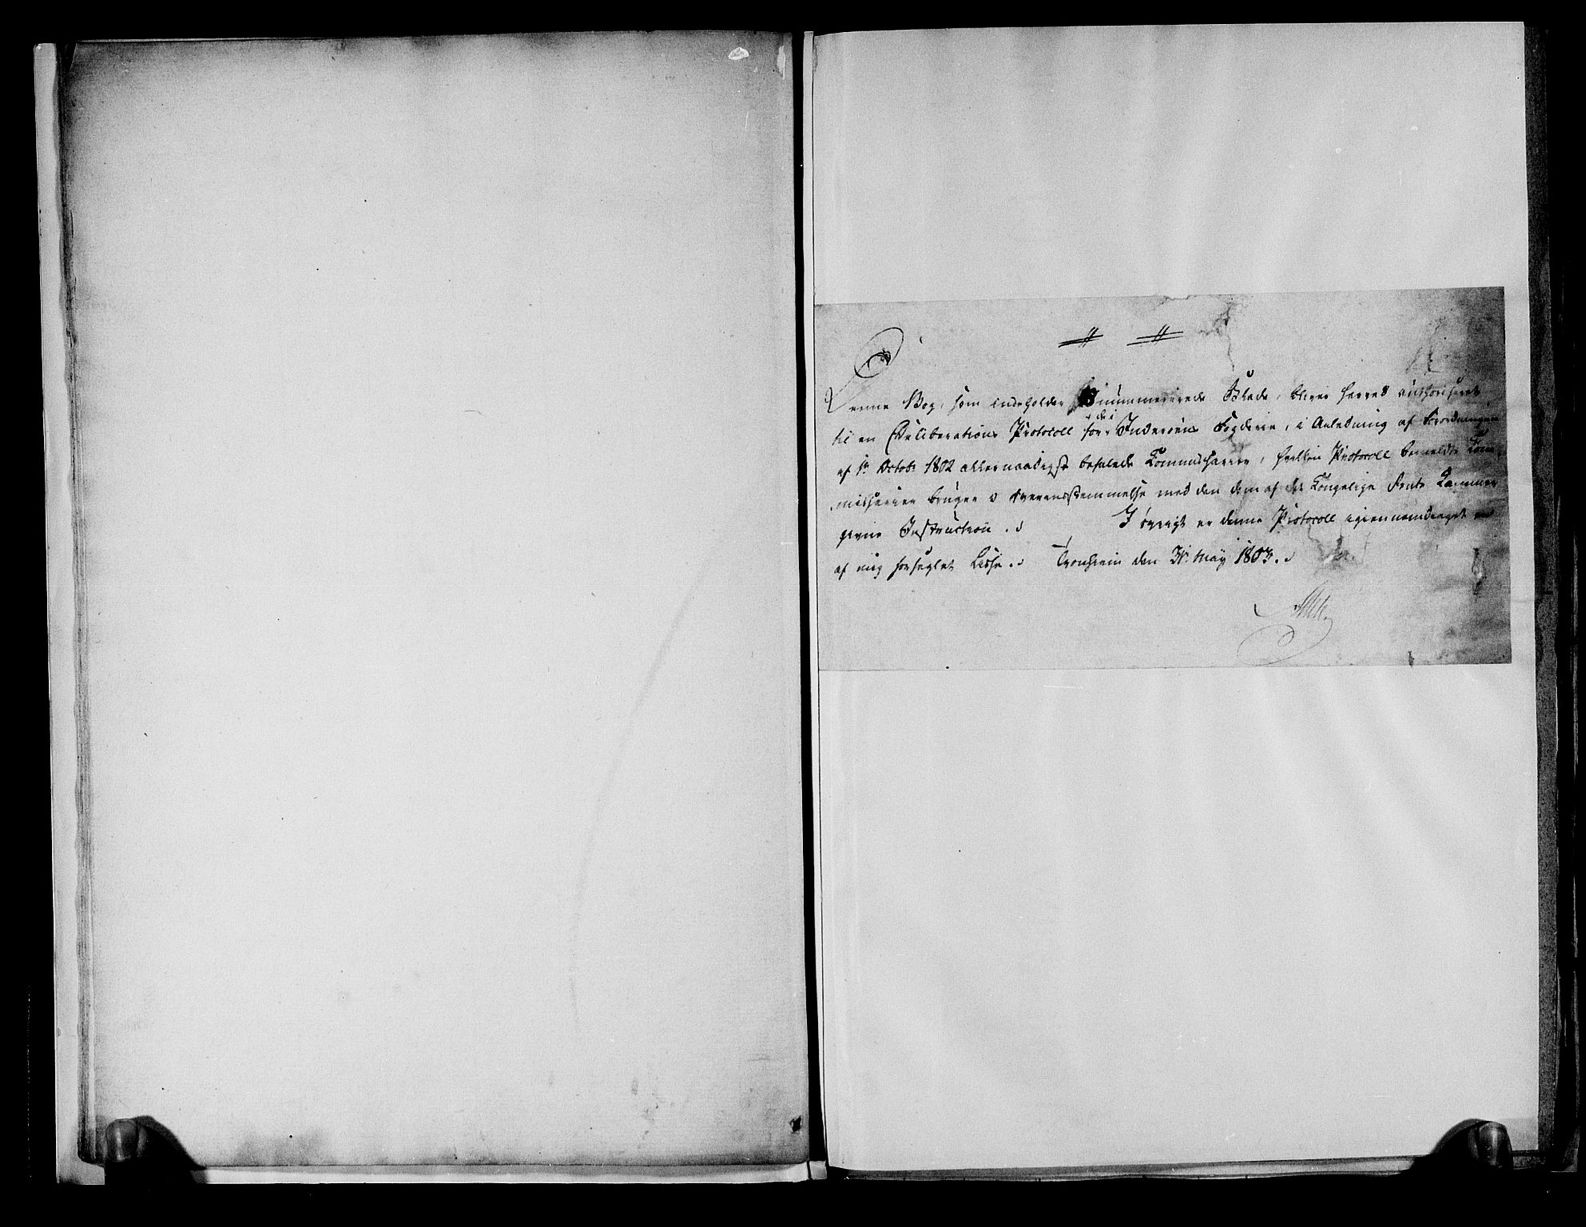 Denne Bog, som indeholder nummererede Blade, bliver herved authoriseret
til en Deliberations Protocoll for de i Inderøens Fogderie, i Anledning af Forordningen
af 1te Octobr 1802 allernaadigst befalede Commissairer, hvilken Protocoll bemeldte Com-
missairer bruger i Overeensstemmelse med den dem af det Kongelige Rente Kammer
givne Instruction. Iøvrigt er denne Protocoll igiennemdraget
af mig forseglet Lidse. Tronhiem den 31te May 1803.